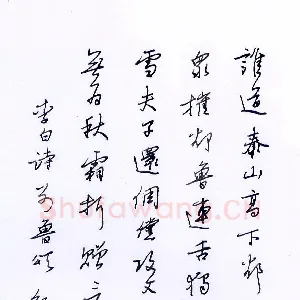 誰道泰山高下卻
眾摧卻魯連舌獨
雪夫子還倜儻攻文
無為秋霜折贈
李白詩別魯頌
Shufawang.CN